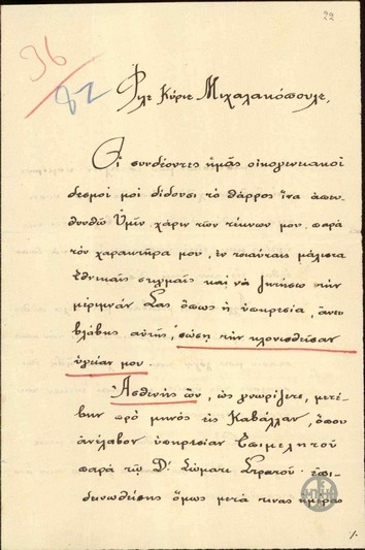 22
36
82
Φίλε Κύριε Μιχαλακόπουλε,
Οἱ συνδέοντες ἡμᾶς οἰκογενειακοὶ
δεσμοί μοὶ δίδουσι τὸ θάρρος ἵνα ἀπευ-
θυνθῶ Ὑμῖν χάριν τῶν τέκνων μου παρὰ
τὸν χαρακτῆρα μου, ἐν τοιαύταις μάλιστα
ἐθνικαῖς στιγμαῖς καὶ νὰ ζητήσω τὴν
μέριμνάν Σας ὅπως ἡ ὑπηρεσία, ἄνευ
βλάβης αὐτῆς, σώσῃ τὴν κλονισθεῖσαν
ὑγείαν μου.
Ἀσθενὴς ὤν, ὡς γνωρίζετε, μετέ-
βην πρὸ μηνὸς εἰς Καβάλλαν, ὅπου
ἀνέλαβον ὑπηρεσίαν Ἐπιμελητοῦ
παρὰ τῷ Δ' Σώματι Στρατοῦ. ἐπι-
δεινωθείσης ὅμως μετά τινας ἡμέρας